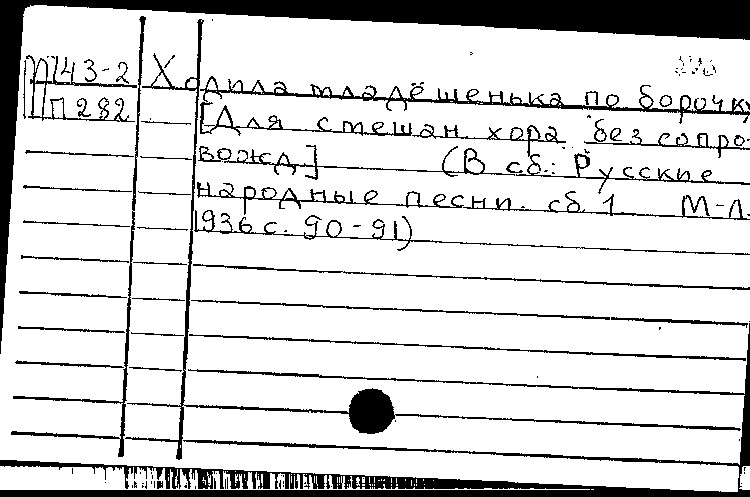 М43-2 Ходила младёшенька по борочку
П282 [Для смешан. хора без сопро-
вожд] (В сб.: Русские
народные песни. сб. 1 М-Л.
1936 с. 90-91)